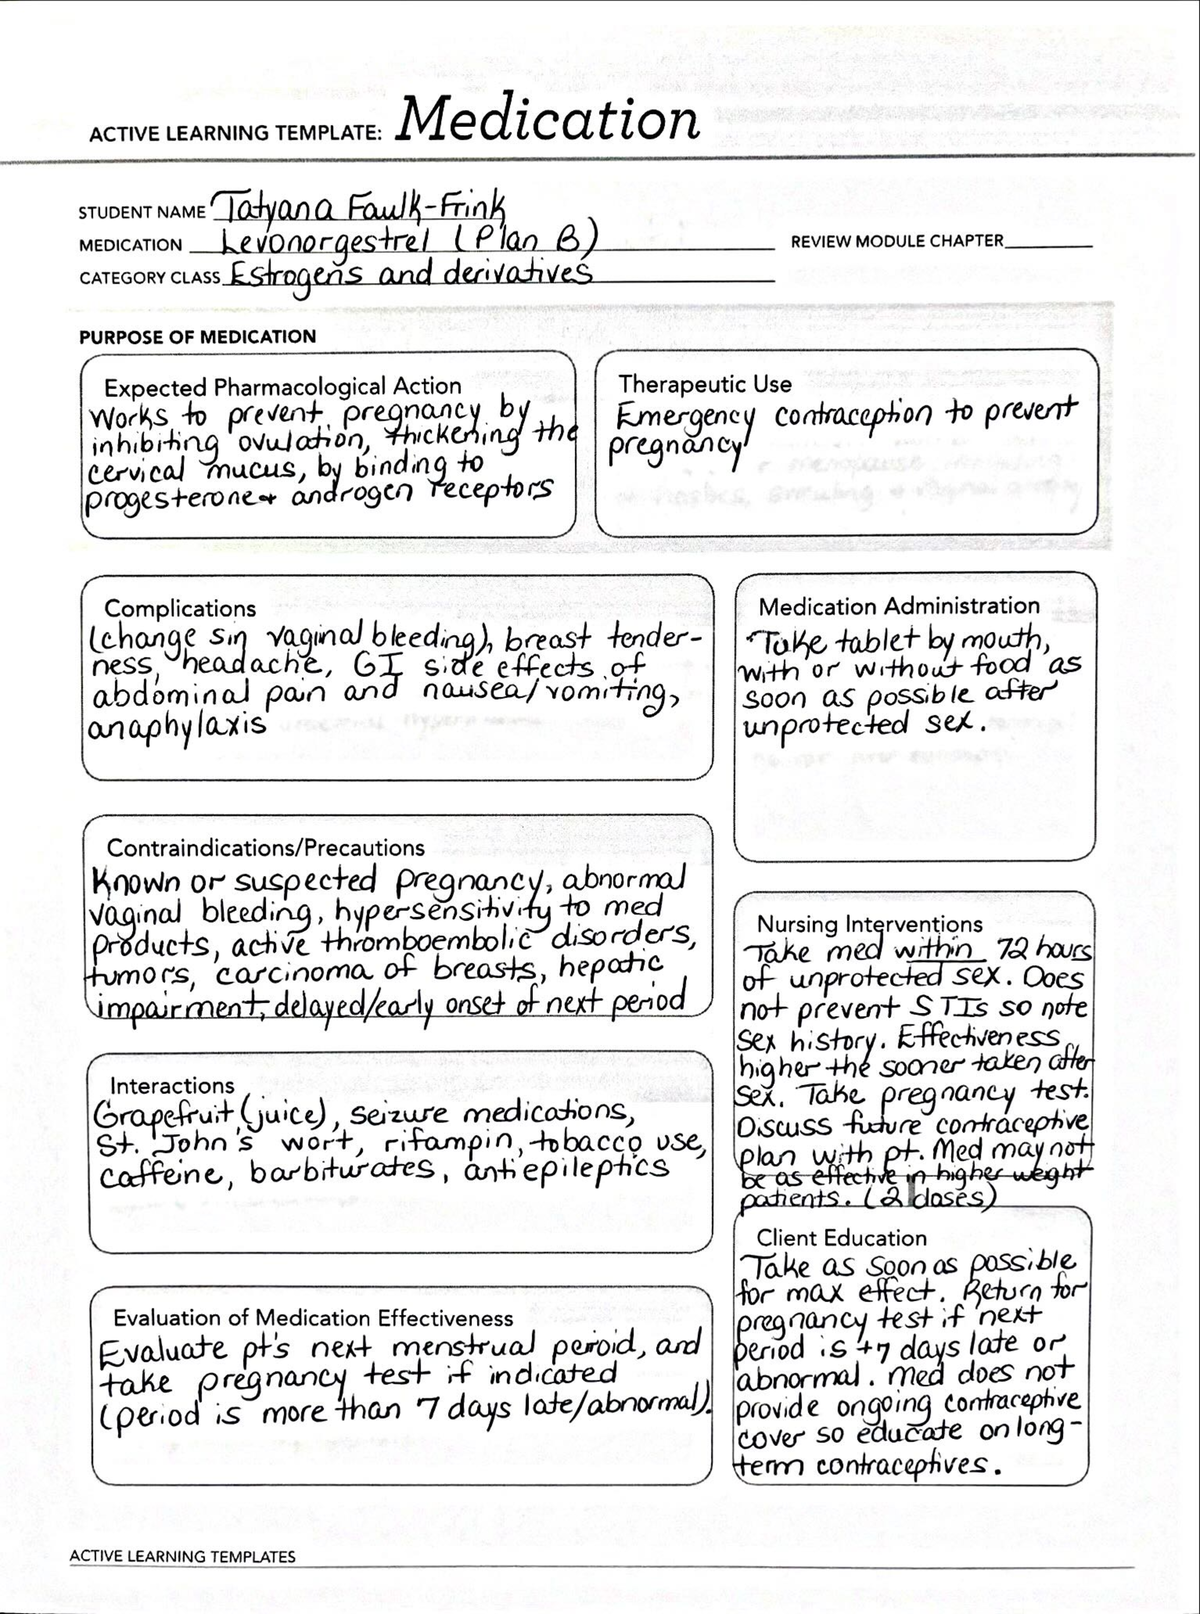 ACTIVE LEARNING TEMPLATE: Medication
STUDENT NAME Tatyana Faulk-Frink
MEDICATION Levonorgestrel (Plan B)
REVIEW MODULE CHAPTER
CATEGORY CLASS Estrogens and derivatives
PURPOSE OF MEDICATION
Expected Pharmacological Action
Works to prevent pregnancy by
inhibiting ovulation, thickening the
cervical mucus, by binding to
progesterone + androgen receptors
Therapeutic Use
Emergency contraception to prevent
pregnancy
Complications
(changes in vaginal bleeding), breast tender-
ness, headache, GI side effects of
abdominal pain and nausea/vomiting,
anaphylaxis
Medication Administration
Take tablet by mouth,
with or without food as
soon as possible after
unprotected sex.
Contraindications/Precautions
Known or suspected pregnancy, abnormal
vaginal bleeding, hypersensitivity to med
products, active thromboembolic disorders,
tumors, carcinoma of breasts, hepatic
impairment, delayed/early onset of next period
Nursing Interventions
Take med within 72 hours
of unprotected sex. Does
not prevent STIs so note
sex history. Effectiveness
higher the sooner taken after
sex. Take pregnancy test.
Discuss future contraceptive
plan with pt. Med may not
be as effective in higher weight
patients. (2 doses)
Interactions
Grapefruit (juice), seizure medications,
St. John's wort, rifampin, tobacco use,
caffeine, barbiturates, antiepileptics
Client Education
Take as soon as possible
for max effect. Return for
pregnancy test if next
period is +7 days late or
abnormal. Med does not
provide ongoing contraceptive
cover so educate on long-
term contraceptives.
Evaluation of Medication Effectiveness
Evaluate pt's next menstrual peroid, and
take pregnancy test if indicated
(period is more than 7 days late/abnormal).
ACTIVE LEARNING TEMPLATES